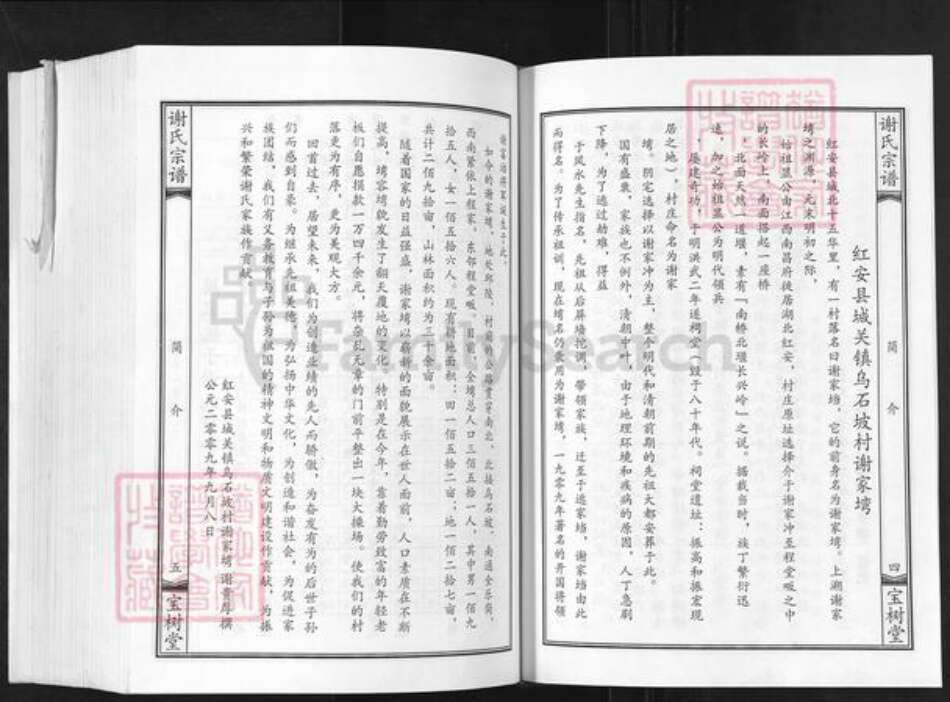 谢氏宗谱
简介
四
宝树堂
红安县城关镇乌石坡村谢家塆
红安县城北十五华里,有一村落名曰谢家塆,它的前身名为谢家塆。上湖谢家
塆之渊源,元末明初之际,
始祖显公由江西南昌府徙居湖北红安,村庄原址选择介于谢家冲至程堂畈之中
的长岭上,南面搭起一座桥
,北面天然一道堰,素有「南桥北堰长兴岭」之说。据载当时,族丁繁衍迅
速,加之始祖显公为明代领兵
,屡建奇功,于明洪武二年遂祠堂(毁于八十年代。祠堂遗址:振高和振宏现
居之地),村庄命名为谢家
塆。阴宅选择以谢家冲为主,整个明代和清朝前期的先祖大都安葬于此。
国有盛衰,家族也不例外,清朝中叶,由于地理环境和疾病的原因,人丁急剧
下降,为了逃过劫难,得益
于风水先生指名,先祖从后屏墙挖调,带领家族,迁至于逃家塆,谢家塆由此
而得名。为了传承祖训,现在塆名仍袭用为谢家塆,一九零九年著名的开国将领
谢富治将军诞生于此。
如今的谢家塆,地长邱陵,村前的公路贯穿南北,北接乌石坡,南通全乐街,
西南紧依上程家,东邻程堂畈。目前,全塆总人口三佰五拾一人,其中男一佰九
拾五人,女一佰五拾六人。现有耕地面积:田一佰五拾二亩;地一佰二拾七亩,
共计二佰九拾亩,山林面积约为三千余亩。
随着国家的日益强盛,谢家塆以崭新的面貌展示在世人面前,人口素质在不断
提高,塆容塆貌发生了翻天覆地的变化,特别是在今年,靠着勤劳致富的年轻老
板们自愿捐款一万四千余元,将杂乱无章的门前平整出一块大操场。使我们的村
落更为有序,更为美观大方。
回首过去,居望未来,我们为创造业绩的先人而骄傲,为奋发有为的后世子孙
们而感到自豪。为继承先祖美德,为弘扬中华文化,为创造和谐社会,为促进家
族团结,我们有义务教育与子孙为祖国的精神文明和物质文明建设作贡献,为振
兴和繁荣谢氏家族作贡献。
红安县城关镇乌石坡村谢家塆 谢贵厚撰
公元二零零九年九月八日
谢氏宗谱
简介
五
宝树堂
FamilySearch